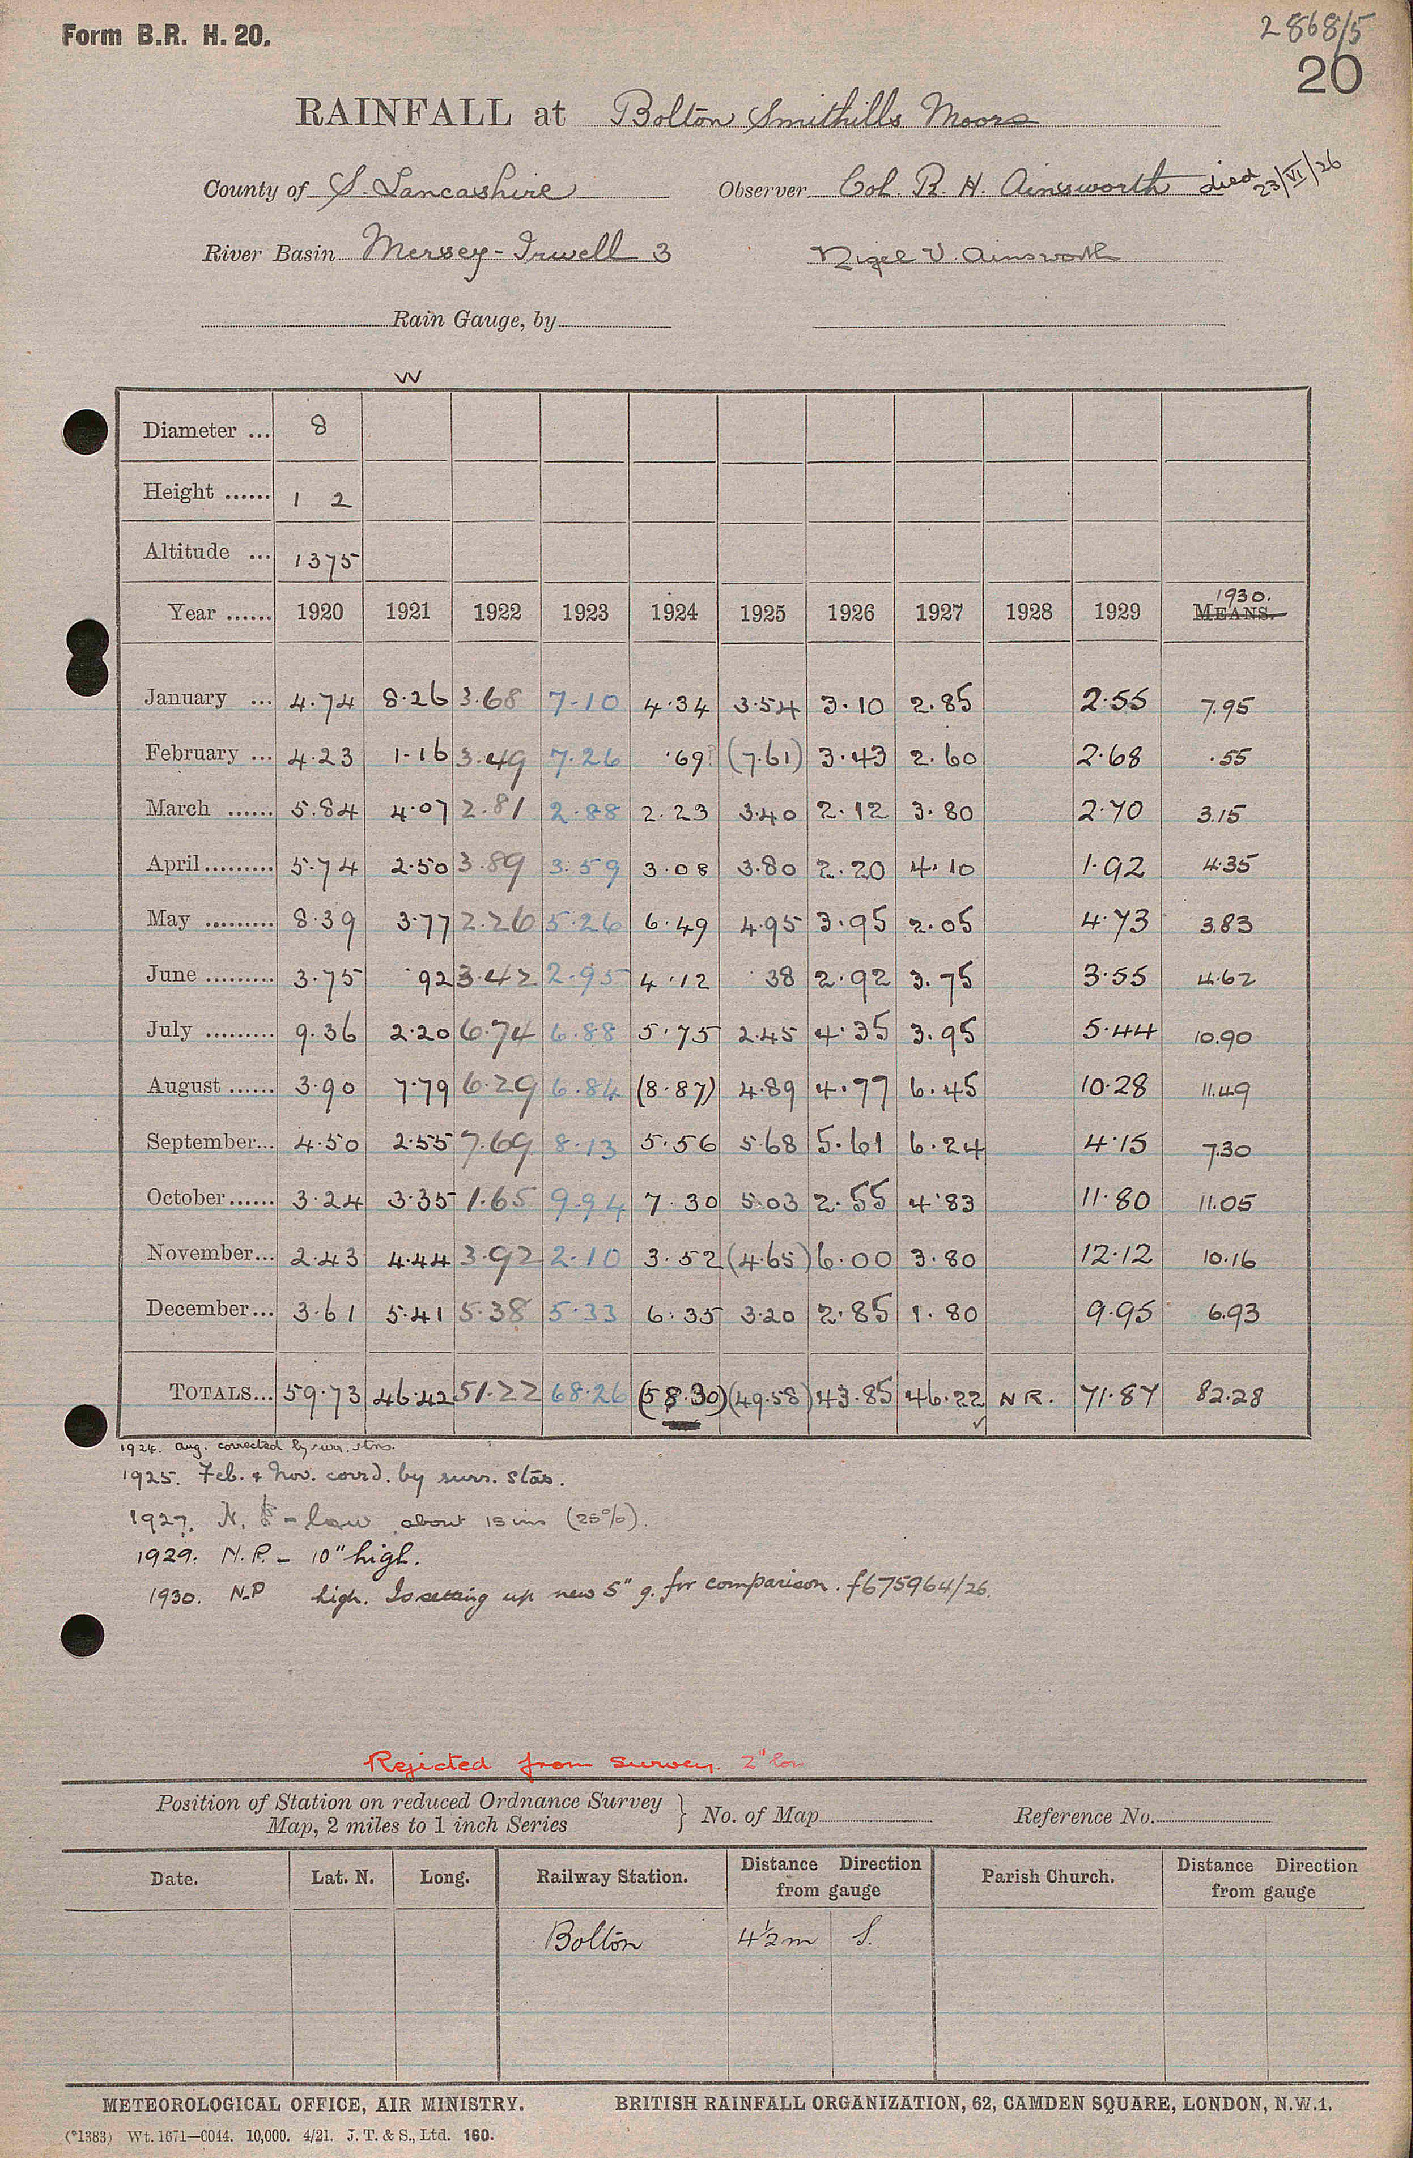 Form B.R. H. 20.
2868/5
20
RAINFALL at Bolton Smithills Moors
County of S. Lancashire Observer Col. R. H. Ainsworth died 23/VI/26
River Basin Mersey-Irwell 3 Nigel V. Ainsworth
Rain Gauge, by
W
Diameter ... 8
Height ...... 1 2
Altitude ... 1375
Year ...... 1920 1921 1922 1923 1924 1925 1926 1927 1928 1929 1930. MEANS.
January ... 4.74 8.26 3.68 7.10 4.34 3.54 3.10 2.85 2.55 7.95
February ... 4.23 1.16 3.49 7.26 .69? (7.61) 3.43 2.60 2.68 .55
March ...... 5.84 4.07 2.81 2.88 2.23 3.40 2.12 3.80 2.70 3.15
April ......... 5.74 2.50 3.89 3.59 3.08 3.80 2.20 4.10 1.92 4.35
May ......... 8.39 3.77 2.26 5.26 6.49 4.95 3.95 2.05 4.73 3.83
June ......... 3.75 .92 3.42 2.95 4.12 .38 2.92 3.75 3.55 4.62
July ......... 9.36 2.20 6.74 6.88 5.75 2.45 4.35 3.95 5.44 10.90
August ...... 3.90 7.79 6.29 6.84 (8.87) 4.89 4.77 6.45 10.28 11.49
September... 4.50 2.55 7.69 8.13 5.56 5.68 5.61 6.24 4.15 7.30
October ...... 3.24 3.35 1.65 9.94 7.30 5.03 2.55 4.83 11.80 11.05
November... 2.43 4.44 3.92 2.10 3.52 (4.65) 6.00 3.80 12.12 10.16
December... 3.61 5.41 5.38 5.33 6.35 3.20 2.85 1.80 9.95 6.93
TOTALS... 59.73 46.42 51.22 68.26 (58.30) (49.58) 43.85 46.22 NR. 71.87 82.28
1924. Aug. corrected by surr. stns.
1925. Feb. & Nov. corrd. by surr. stns.
1927. N. P - low about 15 ins (25%).
1929. N.P. - 10" high.
1930. N.P high. Is setting up new 5" g. for comparison. f675964/26.
Rejected from Survey. 2" low
Position of Station on reduced Ordnance Survey
Map, 2 miles to 1 inch Series } No. of Map Reference No.
Date. Lat. N. Long. Railway Station. Distance Direction from gauge Parish Church. Distance Direction from gauge
Bolton 4½m S.
METEOROLOGICAL OFFICE, AIR MINISTRY. BRITISH RAINFALL ORGANIZATION, 62, CAMDEN SQUARE, LONDON, N.W.1.
(*1383) Wt. 1671—0044. 10,000. 4/21. J. T. & S., Ltd. 160.